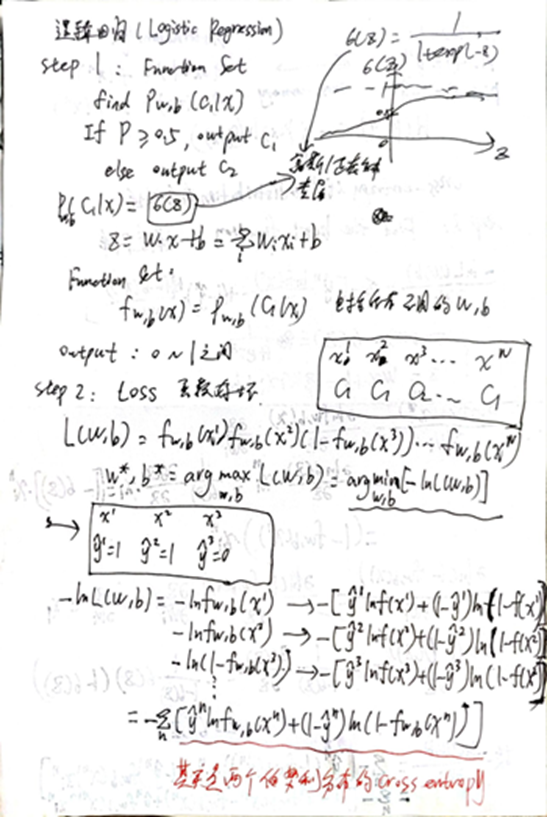 逻辑回归 (Logistic Regression)
6(z) = 1 / 1+exp(-z)
step 1: Function Set
6(z)
find Pw,b (C1|x)
1
If P ≥ 0.5, output C1
0.5
0
z
else output C2
Pw,b (C1|x) = 6(z)
z = w·x+b = Σi wi xi + b
Function Set:
fw,b(x) = Pw,b (C1|x) 不同的 w,b
output: 0~1之间
x¹ x² x³ ... xᴺ
C1 C1 C2 ... C1
step 2: Loss 函数好坏
L(w,b) = fw,b(x¹) fw,b(x²) (1-fw,b(x³)) ... fw,b(xᴺ)
w*, b* = arg max w,b L(w,b) = arg min w,b [-lnL(w,b)]
x¹ x² x³
ŷ¹=1 ŷ²=1 ŷ³=0
-lnL(w,b) = -lnfw,b(x¹) → -[ŷ¹lnf(x¹)+(1-ŷ¹)ln(1-f(x¹)
-lnfw,b(x²) → -[ŷ²lnf(x²)+(1-ŷ²)ln(1-f(x²)
-ln(1-fw,b(x³)) → -[ŷ³lnf(x³)+(1-ŷ³)ln(1-f(x³)
⋮
= -Σn [ŷⁿlnfw,b(xⁿ)+(1-ŷⁿ)ln(1-fw,b(xⁿ))]
其实是两个伯努利分布的cross entropy